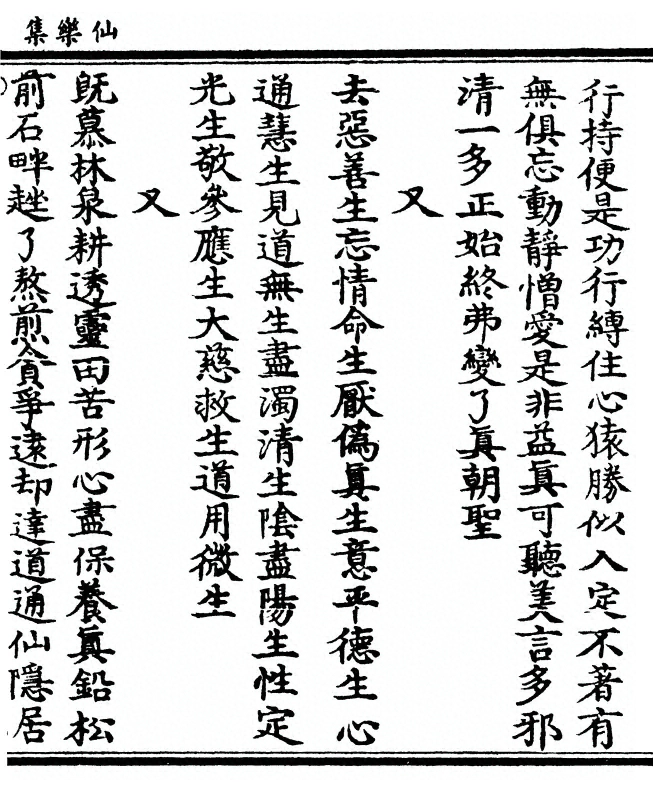 仙樂集
行持便是功行縛住心猿勝似入定不著有
無俱忘動靜憎愛是非益眞可聽美言多邪
清一多正始終弗變了眞朝聖
又
去惡善生忘情命生厭僞眞生意平德生心
通慧生見道無生盡濁清生陰盡陽生性定
光生敬參應生大慈救生道用微生
又
旣慕林泉耕透靈田苦形心盡保養眞鉛松
前石畔趓了熬煎貪爭逮却達道通仙隱居